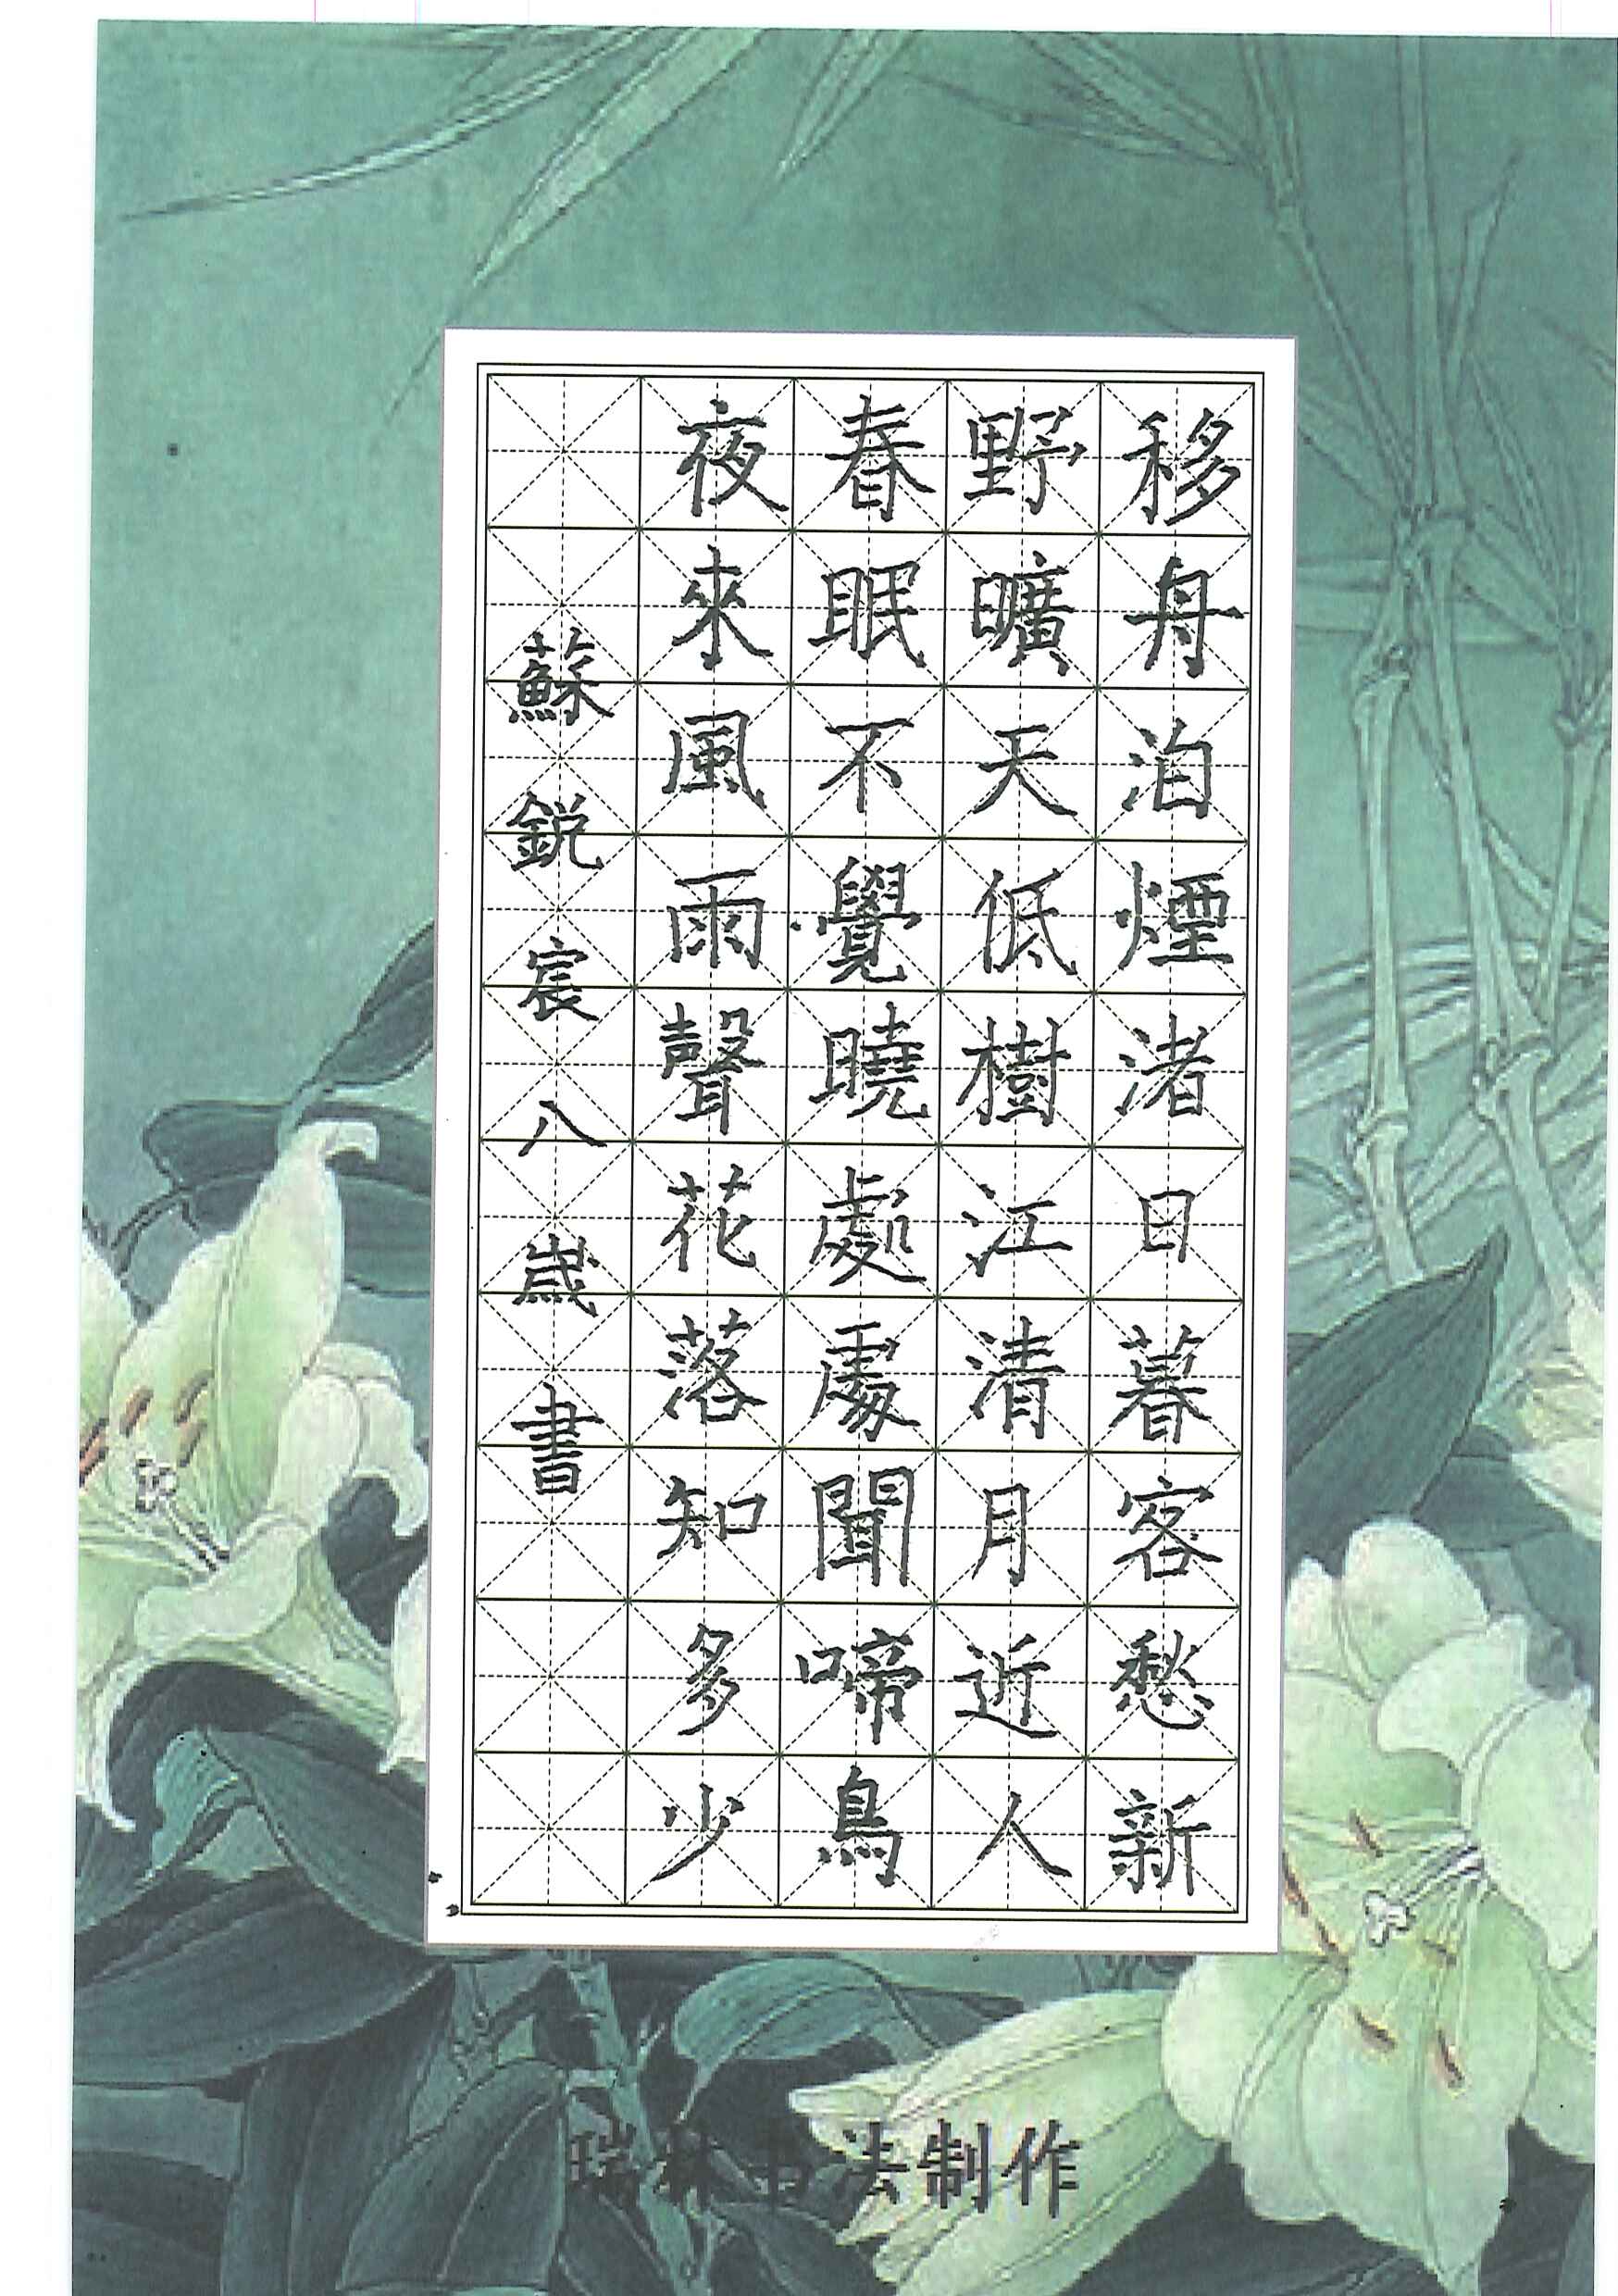 移舟泊煙渚日暮客愁新
野曠天低樹江清月近人
春眠不覺曉處處聞啼鳥
夜來風雨聲花落知多少
蘇鋭宸八歲書
法制作